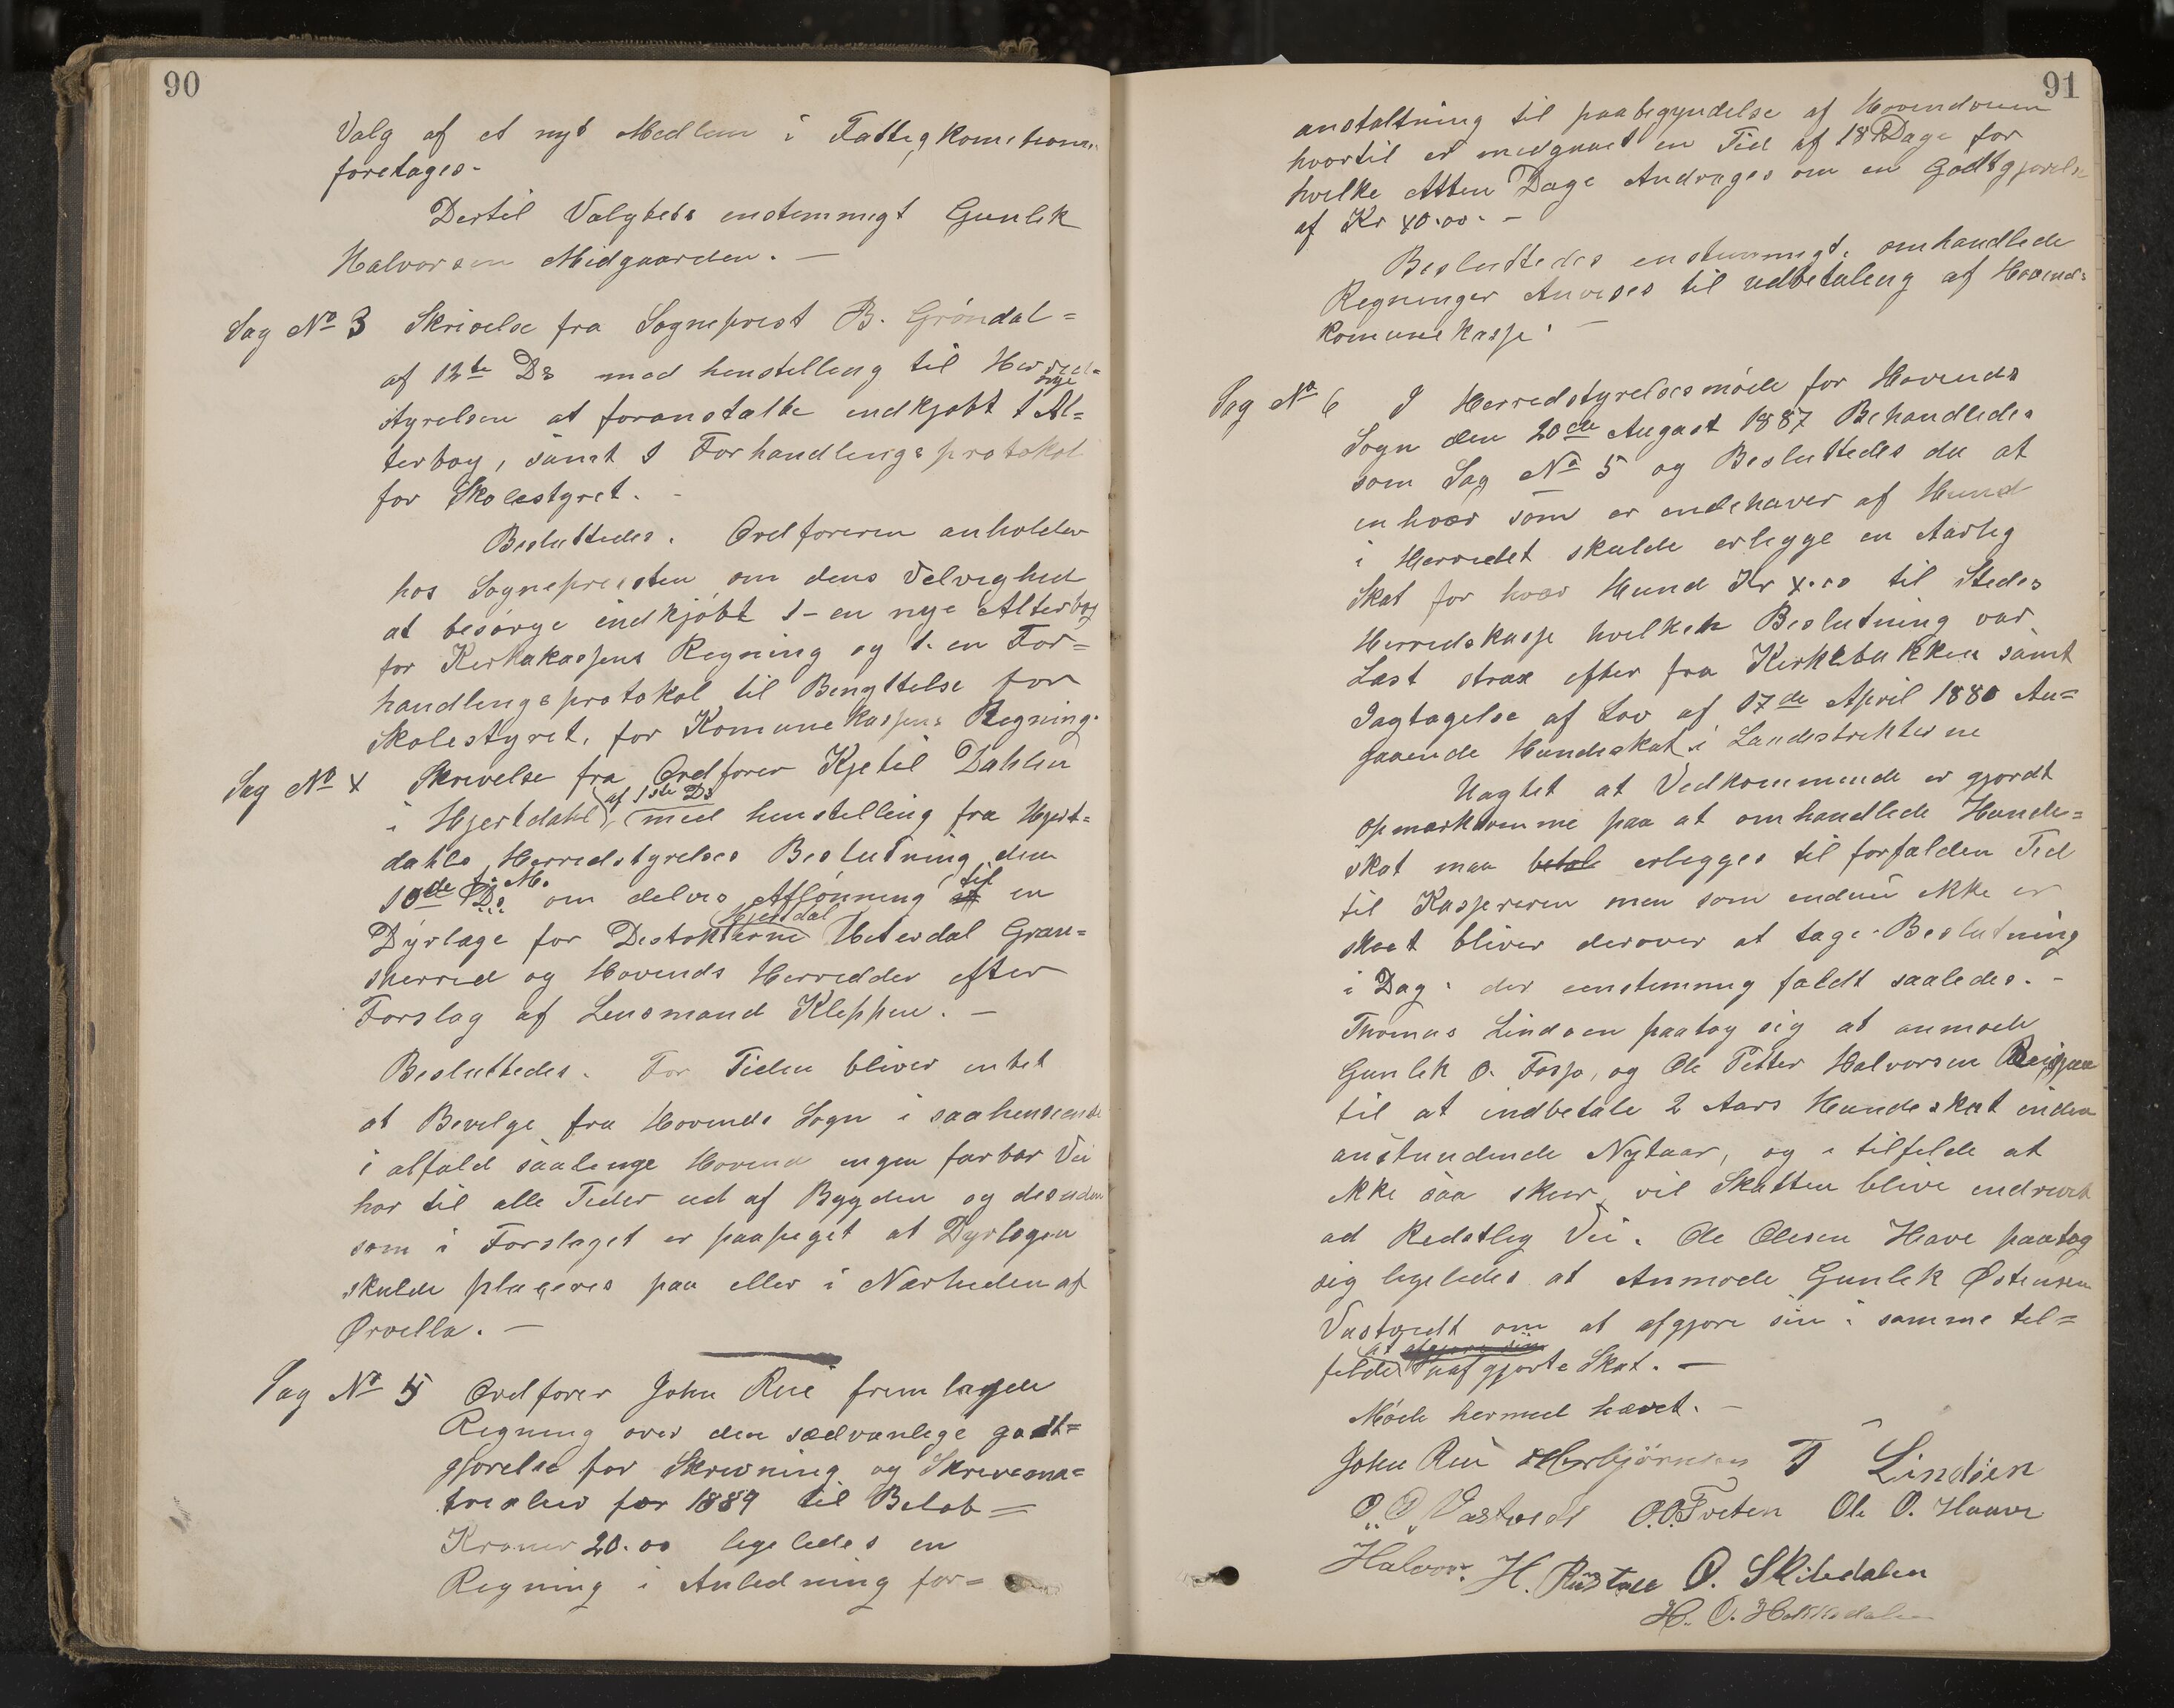 90
Valg af et nyt Medlem i Fattigkomitionen
foretages.
Dertil Valgtes enstemmigt Gunlek
Halvorsen Midgaarden. —
Sag No 3 Skrivelse fra Sogneprest B. Gröndal =
af 12te Ds med henstilling til Herred=
styrelsen at foranstalte indkjøbt 1 nye Al=
terbog, samt 1 Forhandlingsprotokol
for Skolestyret. -
Besluttedes. Ordføreren anholder
hos Sognepresten om dens Velvighed
at besørge indkjöbt 1 - en nye Alterbog
for Kirkekassens Regning og 1. en For=
handlingsprotokol til Benyttelse for
Skolestyret, for Komunekassens Regning.
Sag No 4 Skrivelse fra Ordfører Kjetil Dahlen
i Hjertdahl af 1ste Ds med henstilling fra Hjert=
dahls Herredstyrelses Beslutning den
10de f. M. Ds om delvis Aflönning til at en
Dyrlæge for Destrikterne Hjertdal Heterdal Gran=
sherred og Hovinds Herredder efter
Forslag af Lensmand Kleppen. —
Besluttedes. For Tiden bliver intet
at Bevilge fra Hovinds Sogn i saahenseende
i alfald saalenge Hovind ingen farbar Vei
har til alle Tider ud af Bygden og desuden
som i Forslaget er paapeget at Dyrlegen
skulde plaseres paa eller i Nærheden af
Ørvella. —
Sag No 5 Ordfører John Rui fremlagde
Regning over den sædvanlige godt=
gjörelse for Skrivning og Skrivema=
trealier for 1889 til Beløb =
Kroner 20.00 ligeledes en
Regning i Anledning for=
91
anstaltning til paabegyndelse af Hovindveien
hvortil er medgaaet en Tid af 18 Dage for
hvilke Atten Dage Andrages om en Godtgjørelse
af Kr 40.00. -
Besluttedes enstemmigt. omhandlede
Regninger Anvises til udbetaling af Hovinds
komunekasse. —
Sag No 6 I Herredstyrelsesmöde for Hovinds
Sogn den 20de August 1887 Behandledes
som Sag No 5 og Besluttedes da at
enhver som er indehaver af Hund
i Herredet skulde erlegge en Aarlig
Skat for hver Hund Kr 4.00 til Stedes
Herredskasse hvilken Beslutning var
Læst strax efter fra Kirkebakken samt
Iagtagelse af Lov af 17de April 1880 An=
gaaende Hundeskat i Landestrikterne
Uagtet at Vedkommende er gjordt
opmærksomme paa at omhandlede Hunde=
skat maa betale erlegges til forfalden Tid
til Kassereren men som endnu ikke er
skeet bliver derover at tage Beslutning
i Dag. der eenstemmig faldt saaledes. -
Thomas Lindsen paatog sig at anmode
Gunlek O. Fosso, og Ole Petter Halvorsen
til at indbetale 2 Aars Hundeskat inden
anstundende Nytaar, og i tilfelde at
ikke saa sker, vil Skatten blive inddrevet
ad Redstlig Vei. Ole Olesen Have paatog
sig ligeledes at Anmode Gunlek Østensen
Vastvedt om at afgjøre sin i samme til=
felde at afgjøre sin uafgjorte Skat. —
Möde hermed hævet. -
John Rui Herbjörnsen T Lindsen
O. O. Vastveidt O.O. Tveten Ole O. Haave
Halvor. H. Rustad O. Skitedalen
H. O. Hakkedalen